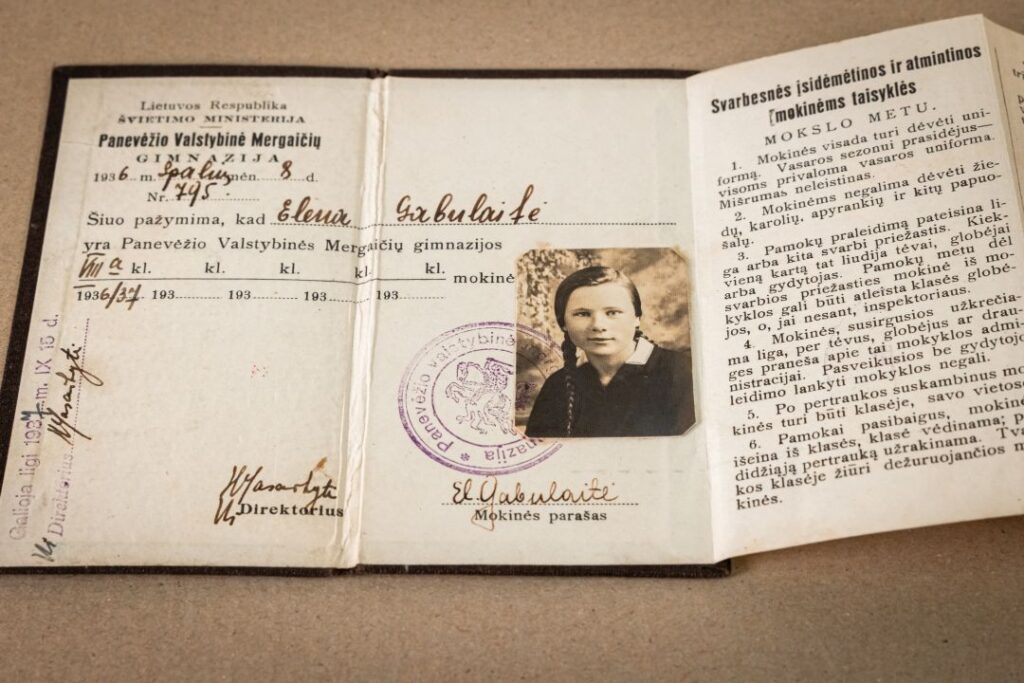 Lietuvos Respublika
ŠVIETIMO MINISTERIJA
Panevėžio Valstybinė Mergaičių
GIMNAZIJA
1936 m. Spalių mėn. 8 d.
Nr. 795.
Šiuo pažymima, kad Elena Gabulaitė
yra Panevėžio Valstybinės Mergaičių gimnazijos
VIII a kl. kl. kl. kl. kl. mokinė
1936/37 193 193 193 193
Galioja ligi 1937 m. IX 15 d.
Direktorius
Direktorius
Panevėžio valstybinė
El. Gabulaitė
Mokinės parašas
Svarbesnės įsidėmėtinos ir atmintinos
mokinėms taisyklės
MOKSLO METU.
1. Mokinės visada turi dėvėti uni-
formą. Vasaros sezonui prasidėjus—
visoms privaloma vasaros uniforma.
Mišrumas neleistinas.
2. Mokinėms negalima dėvėti žie-
dų, karolių, apyrankių ir kitų papuo-
šalų.
3. Pamokų praleidimą pateisina li-
ga arba kita svarbi priežastis. Kiek-
vieną kartą tat liudija tėvai, globėjai
arba gydytojas. Pamokų metu dėl
svarbios priežasties mokinė iš mo-
kyklos gali būti atleista klasės globė-
jos, o, jai nesant, inspektoriaus.
4. Mokinės, susirgusios užkrečia-
ma liga, per tėvus, globėjus ar drau-
ges praneša apie tai mokyklos admi-
nistracijai. Pasveikusios be gydytojo
leidimo lankyti mokyklos negali.
5. Po pertraukos suskambinus mo
kinės turi būti klasėje, savo vietose
6. Pamokai pasibaigus, mokinė
išeina iš klasės, klasė vėdinama; p
didžiąją pertrauką užrakinama. Tva
kos klasėje žiūri dežuruojančios
kinės.